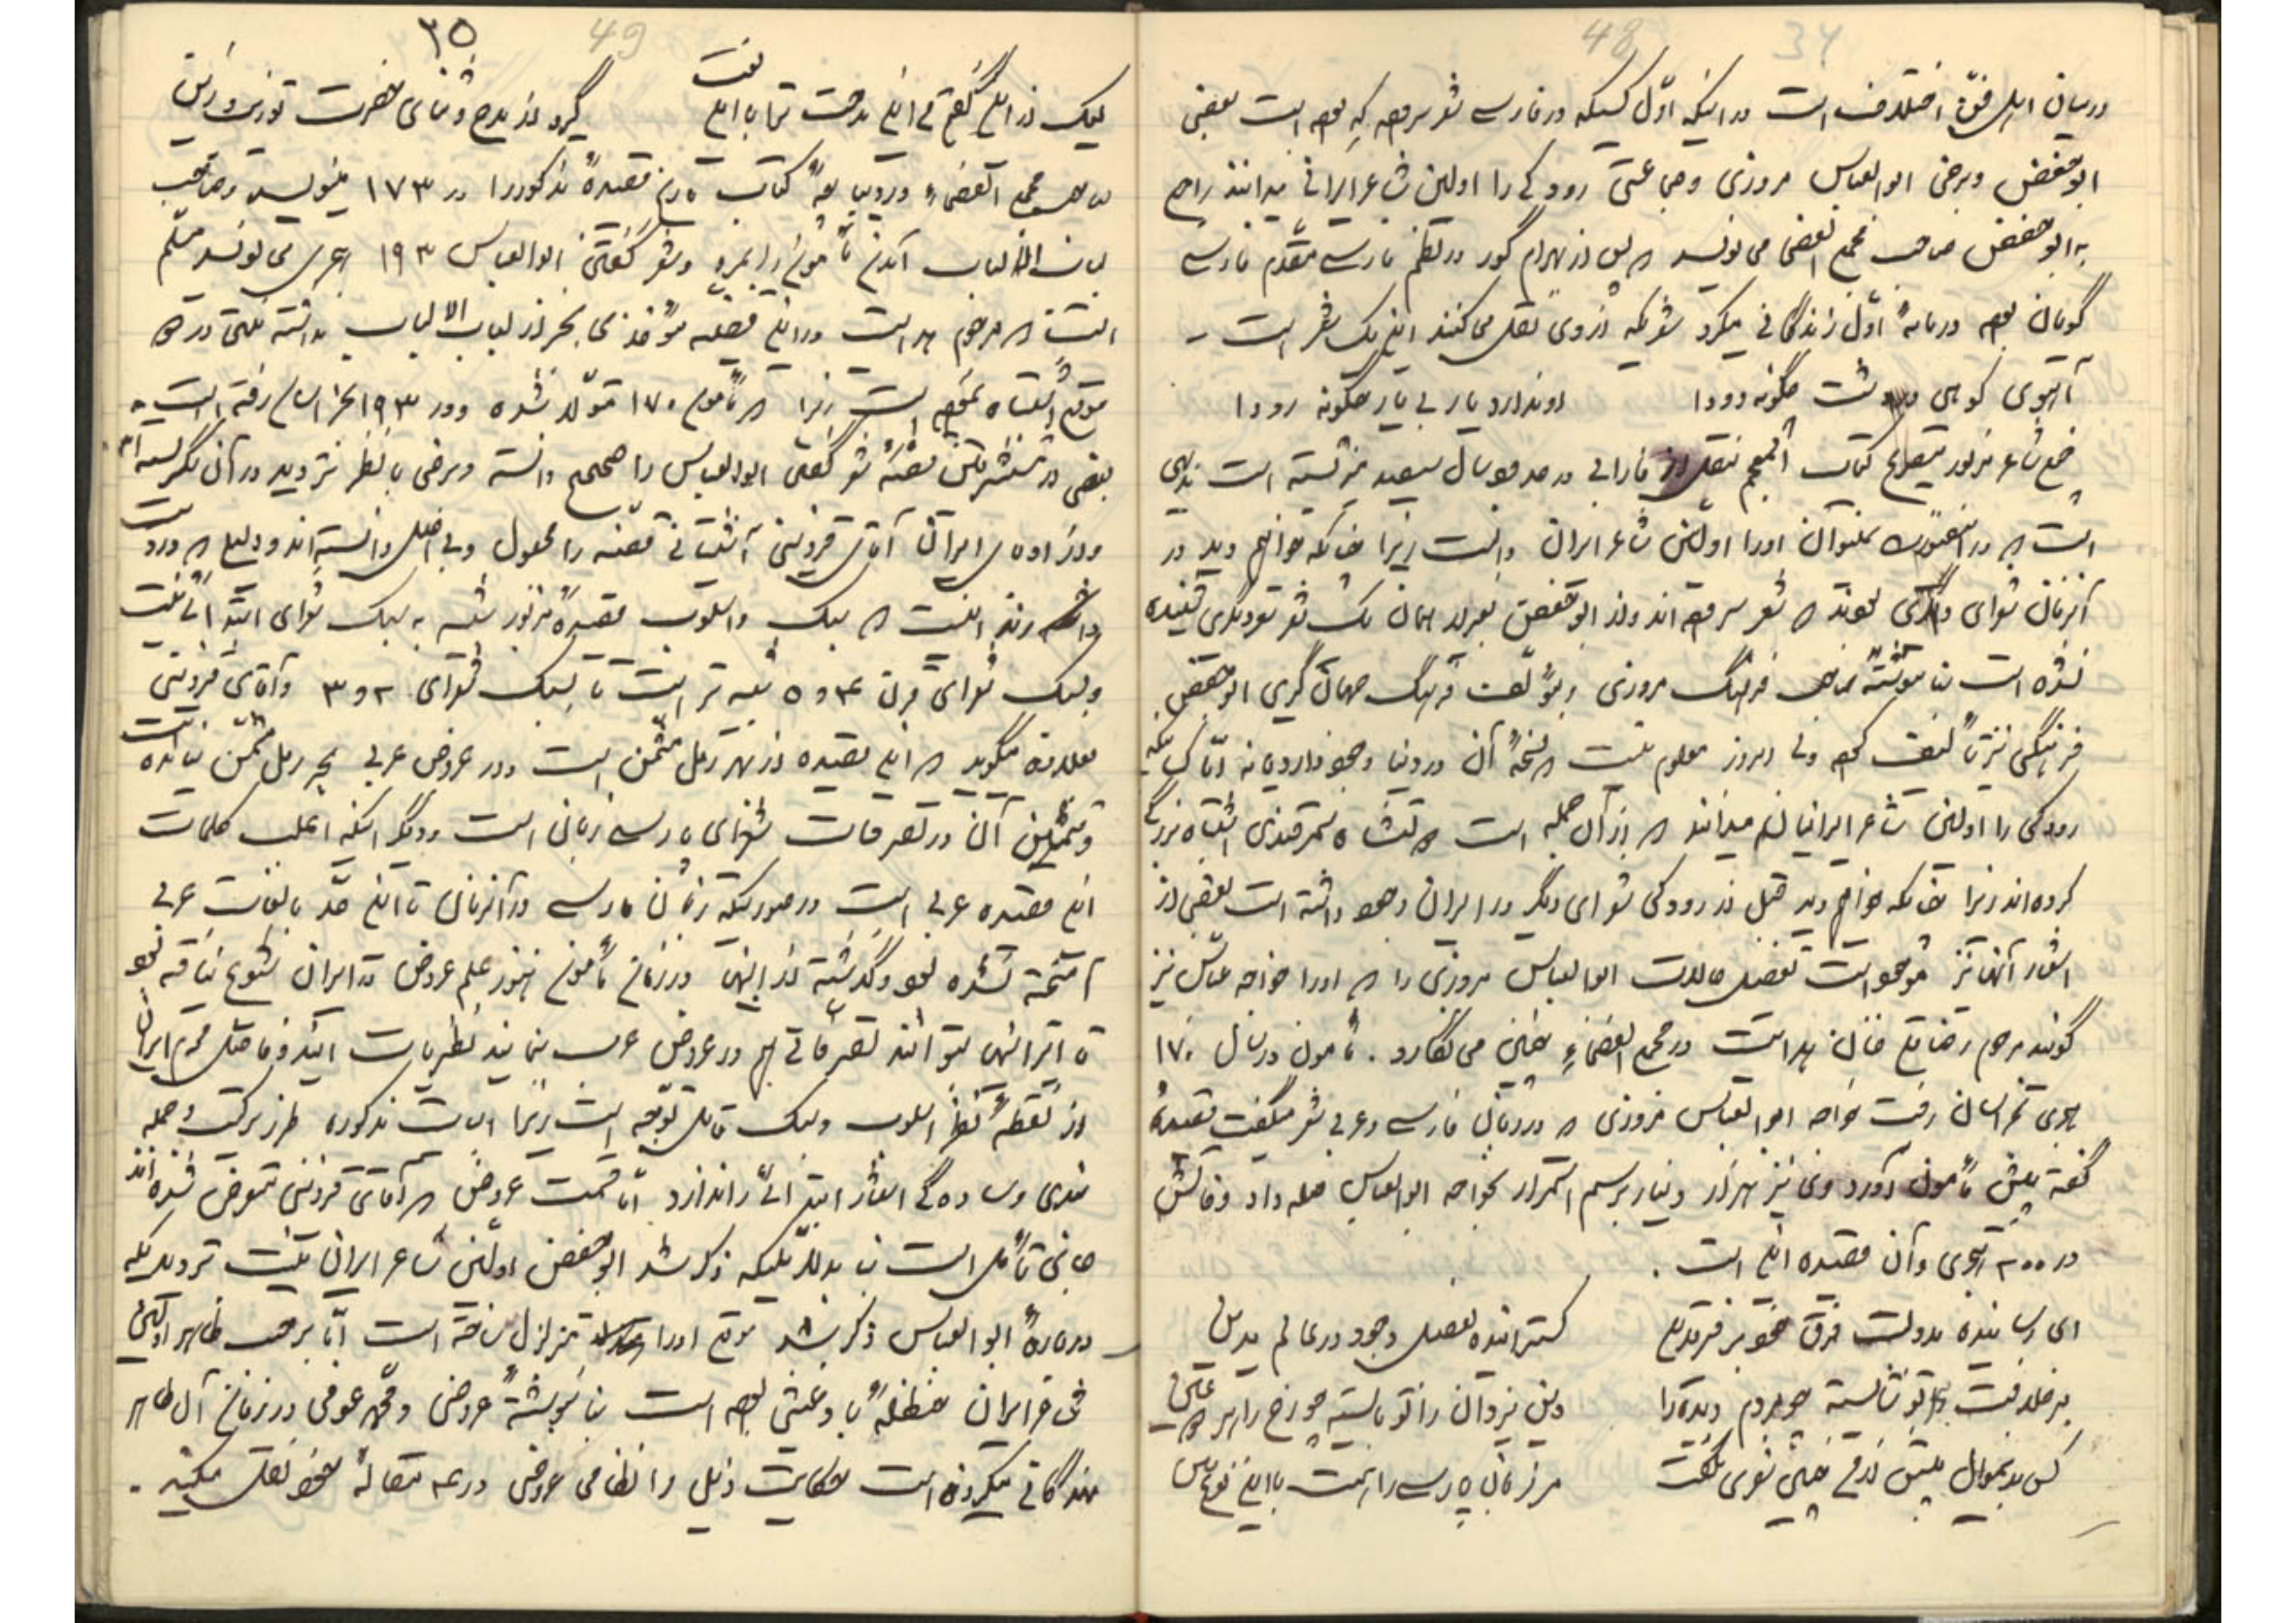 48 34
درمیان اهل فنّ اختلاف است در اینکه اوّل کسیکه در فارسی شعر سروده که بوده است بعضی
ابوحفص و برخی ابوالعباس مروزی و جماعتی رودکی را اولین شاعر ایرانی میدانند راجع
به ابوحفص صاحب مجمع الفصحا می نویسد که پس از بهرام گور در نظم فارسی مقدّم فارسی
گویان بوده در مائهٔ اوّل زندگانی میکرد شعریکه از وی نقل می کنند این یک شعر است -
آهوی کوهی در دشت چگونه دودا اوندارد یار بی یار چگونه رودا
شاعر مزبور کتاب المعجم بنقل از فارابی در حدود سال سیصد میزیسته است بدیهی
است که در اینصورت نمیتوان اورا اولین شاعر ایران دانست زیرا چنانکه خواهیم دید در
آنزمان شعرای دیگری بودند که شعر سروده اند و از ابوحفص بغیر از همان یک شعر شعر دیگری شنیده
نشده است بنا بنوشتهٔ صاحب فرهنگ سروری و مؤلف فرهنگ جهانگیری ابوحفص
فرهنگی نیز تألیف کرده ولی امروز معلوم نیست که نسخهٔ آن در دنیا وجود دارد یا نه امّا کسانیکه
رودکی را اولین شاعر ایرانیان میدانند که از آن جمله است دولتشاه سمرقندی اشتباه بزرگی
کرده اند زیرا چنانکه خواهیم دید قبل از رودکی شعرای دیگر در ایران وجود داشته است بعضی از
اشعار آنها نیز موجود است تفصیل حالات ابوالعباس مروزی را که اورا خواجه عباس نیز
گویند مرحوم رضا قلی خان هدایت در مجمع الفصحاء چنین می نگارد . مأمون در سال ۱۷۰
هجری بخراسان رفت خواجه ابوالعباس مروزی که در زبان فارسی و عربی شعر میگفت قصیدهٔ
گفته پیش مأمون آورد وی نیز هزار دینار برسم استمرار بخواجه ابوالعباس صله داد وفاتش
در ۲۰۰ هجری و آن قصیده این است .
ای رسانیده بدولت فرق خود بر فرقدین گسترانیده بفضل وجود در عالم یدین
مر خلافت را تو شایسته چو مردم دیده را دین یزدان را تو بایسته چو رخ را هر دو عین
کس بدینمنوال پیش از من چنین شعری نگفت مر زبان پارسی را هست با این نوع بین
۳۵ 49
لیک زان گفتم من این مدحت ترا تا این لغت گیرد از مدح و ثنای حضرت تو زیب و زین
صاحب مجمع الفصحاء در دیباچهٔ کتاب تاریخ قصیدهٔ مذکور را در ۱۷۳ مینویسد و صاحب
لباب الالباب آمدن مأمون را بمرو و شعر گفتن ابوالعباس ۱۹۳ هجری می نویسد مسلّم
است که مرحوم هدایت در این قضیه مؤخذی بجز از لباب الالباب نداشته منتهی در
موقع اشتباه نموده است زیرا که مأمون ۱۷۰ متولّد شده و در ۱۹۳ بخراسان رفته است .
بعضی از مستشرقین قضیهٔ شعر گفتن ابوالعباس را صحیح دانسته و برخی با نظر تردید در آن نگریسته اند
و از ادبای ایران آقای قزوینی آشتیانی قضیه را مجعول و بی اصل دانسته اند و دلیلی که در دست
دارند اینست که سبک و اسلوب قصیدهٔ مزبور شبیه به سبک شعرای ابتدائی نیست
و سبک شعرای قرن ۴ و ۵ شبیه تر است تا بسبک شعرای ۲ و ۳ و آقای قزوینی
بعلاوه میگوید که این قصیده از بحر رمل مثمّن است و در عروض عربی بحر رمل مثمّن نیامده است
و تثمین آن در تصرفات شعرای پارسی زبان است و دیگر اینکه اغلب کلمات
این قصیده عربی است در صورتیکه زبان فارسی در آنزمان تا این حدّ با لغات عربی
آمیخته نشده بود و گذشته از اینها در زمان مأمون هنوز علم عروض در ایران شیوع نیافته بود
تا ایرانیها بتوانند تصرفاتی هم در عروض عرب بنمایند نظریات ایندو فاضل محترم ایرانی
از نقطهٔ نظر اسلوب و سبک قابل توجّه است زیرا ابیات مذکوره طرز ترکیب و جمله
بندی و سادگی اشعار ابتدائی را ندارد امّا قسمت عروض که آقای قزوینی متعرض شده اند
جای تأمل است بنا بدلائلیکه ذکر شد ابوحفص اولین شاعر ایران نیست تردیدیکه
در بارهٔ ابوالعباس ذکر شد موقع اورا متزلزل ساخته است امّا برحسب ظاهر اولین
شاعر ایران حنظلهٔ بادغیسی بوده است بنا بنوشتهٔ عروضی و محمّد عوفی در زمان آل طاهر
زندگانی میکرده است حکایت ذیل را نظامی عروضی در چهار مقالهٔ خود نقل میکند .